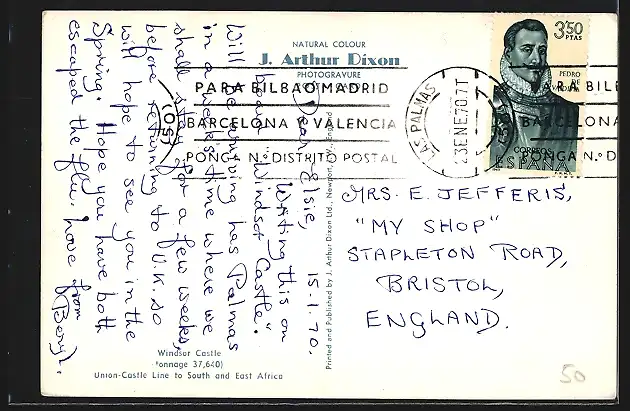 NATURAL COLOUR
J. Arthur Dixon
PHOTOGRAVURE
15.1.70.
Dear Elsie,
Writing this on
board "Windsor Castle".
Will be arriving has Palmas
in a week's time where we
shall stay for a few weeks,
before returning to U.K. so
will hope to see you in the
Spring. Hope you have both
escaped the flu. Love from
Beryl.
Windsor Castle
Tonnage 37,640)
Union-Castle Line to South and East Africa
Printed and Published by J. Arthur Dixon Ltd., Newport, England
PARA BILBAO MADRID
BARCELONA Y VALENCIA
PONGA N.º DISTRITO POSTAL
LAS PALMAS
23 ENE. 70. 7T
3'50
PTAS
PEDRO
DE
CORREOS
ESPAÑA
RA BILB
BARCELONA
PONGA N.º D
MRS. E. JEFFERIS,
"MY SHOP"
STAPLETON ROAD,
BRISTOL,
ENGLAND.
50